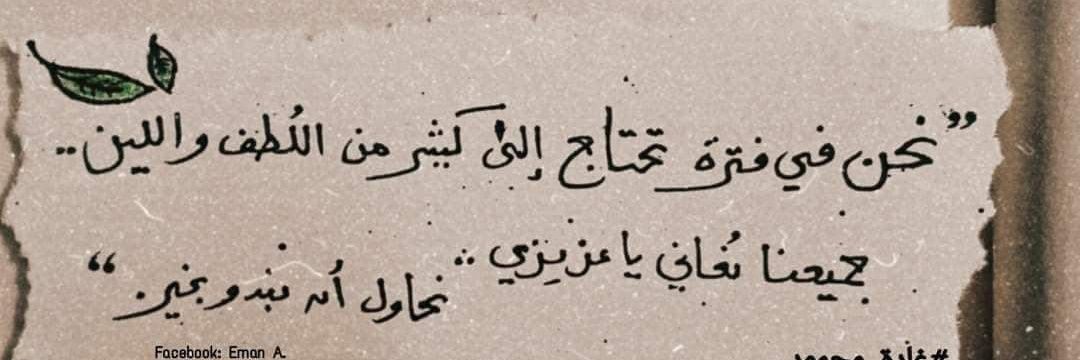 ”نحن في فترة تحتاج إلى كثير من اللُطف واللين..
جميعنا نُعاني يا عزيزي .. نحاول أن نبدو بخير.“
Facebook: Eman A.